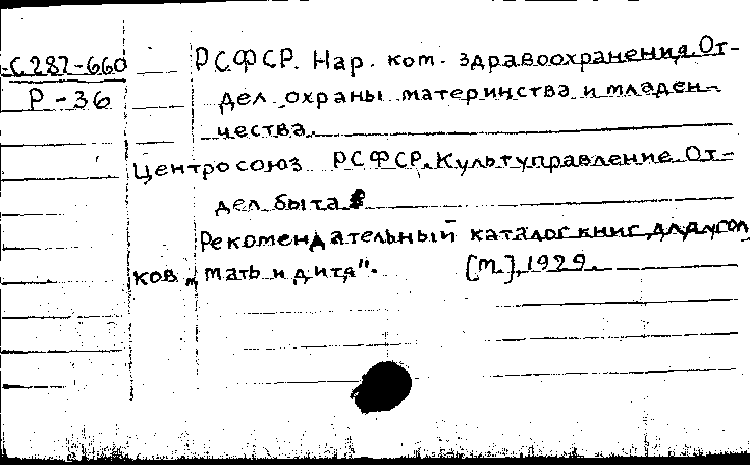 С.287-660
Р-36
РСФСР. Нар. ком. здравоохранения. От-
дел охраны материнства и младен-
чества.
Центросоюз РСФСР. Культуправление. От-
дел быта
Рекомендательный каталог книг для угол
ков „мать и дитя". [М.], 1929.